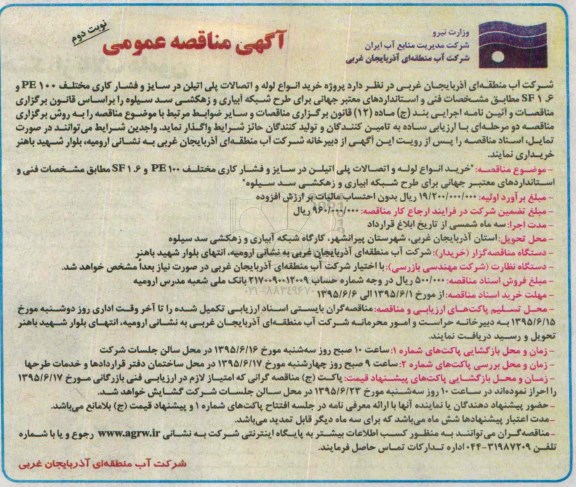 وزارت نیرو
شرکت مدیریت منابع آب ایران
شرکت آب منطقه‌ای آذربایجان غربی
آگهی مناقصه عمومی
نوبت دوم
شرکت آب منطقه‌ای آذربایجان غربی در نظر دارد پروژه خرید انواع لوله و اتصالات پلی اتیلن در سایز و فشار کاری مختلف PE ۱۰۰ و
SF ۱.۶ مطابق مشخصات فنی و استانداردهای معتبر جهانی برای طرح شبکه آبیاری و زهکشی سد سیلوه را براساس قانون برگزاری
مناقصات و آئین نامه اجرایی بند (ج) ماده (۱۲) قانون برگزاری مناقصات و سایر ضوابط مرتبط با موضوع مناقصه را به روش برگزاری
مناقصه دو مرحله‌ای با ارزیابی ساده به تامین کنندگان و تولید کنندگان حائز شرایط واگذار نماید. واجدین شرایط می‌توانند در صورت
تمایل، اسناد مناقصه را پس از رویت این آگهی از دبیرخانه شرکت آب منطقه‌ای آذربایجان غربی به نشانی ارومیه، بلوار شهید باهنر
خریداری نمایند.
- موضوع مناقصه: "خرید انواع لوله و اتصالات پلی اتیلن در سایز و فشار کاری مختلف PE ۱۰۰ و SF ۱.۶ مطابق مشخصات فنی و
استانداردهای معتبر جهانی برای طرح شبکه آبیاری و زهکشی سد سیلوه"
- مبلغ برآورد اولیه: ۱۹/۲۰۰/۰۰۰/۰۰۰ ریال بدون احتساب مالیات بر ارزش افزوده
- مبلغ تضمین شرکت در فرایند ارجاع کار مناقصه: ۹۶۰/۰۰۰/۰۰۰ ریال
- مدت اجرا: سه ماه شمسی از تاریخ ابلاغ قرارداد
- محل تحویل: استان آذربایجان غربی، شهرستان پیرانشهر، کارگاه شبکه آبیاری و زهکشی سد سیلوه
- دستگاه مناقصه‌گزار (خریدار): شرکت آب منطقه‌ای آذربایجان غربی به نشانی ارومیه، انتهای بلوار شهید باهنر
- دستگاه نظارت (شرکت مهندسی بازرسی): با اختیار شرکت آب منطقه‌ای آذربایجان غربی در صورت نیاز بعداً مشخص خواهد شد.
- مبلغ فروش اسناد مناقصه: ۵۰۰/۰۰۰ ریال در وجه شماره حساب ۲۱۷۰۰۹۰۰۱۲۰۰۹ بانک ملی شعبه مدرس ارومیه
- مهلت خرید اسناد مناقصه: از مورخ ۱۳۹۵/۶/۱ الی ۱۳۹۵/۶/۶
- محل تسلیم پاکت‌های ارزیابی و مناقصه: مناقصه‌گران بایستی اسناد ارزیابی تکمیل شده را تا آخر وقت اداری روز دوشنبه مورخ
۱۳۹۵/۶/۱۵ به دبیرخانه حراست و امور محرمانه شرکت آب منطقه‌ای آذربایجان غربی به نشانی ارومیه، انتهای بلوار شهید باهنر
تحویل و رسید دریافت نمایند.
- زمان و محل بازگشایی پاکت‌های شماره ۱: ساعت ۱۰ صبح روز سه‌شنبه مورخ ۱۳۹۵/۶/۱۶ در محل سالن جلسات شرکت
- زمان و محل بررسی پاکت‌های شماره ۲: ساعت ۹ صبح روز چهارشنبه مورخ ۱۳۹۵/۶/۱۷ در محل ساختمان دفتر قراردادها و خدمات طرحها
- زمان و محل بازگشایی پاکت‌های پیشنهاد قیمت: پاکت (ج) مناقصه گرانی که امتیاز لازم در ارزیابی فنی بازرگانی مورخ ۱۳۹۵/۶/۱۷
را احراز نموده‌اند در ساعت ۱۰ روز سه‌شنبه مورخ ۱۳۹۵/۶/۲۳ در محل سالن جلسات شرکت گشایش خواهد شد.
- حضور پیشنهاد دهندگان یا نماینده آنها با ارائه معرفی نامه در جلسه افتتاح پاکت‌های شماره ۱ و پیشنهاد قیمت (ج) بلامانع می‌باشد.
- مدت اعتبار پیشنهادها شش ماه می‌باشد که برای سه ماه دیگر قابل تمدید می‌باشد.
- مناقصه‌گران می‌توانند به منظور کسب اطلاعات بیشتر به پایگاه اینترنتی شرکت به نشانی www.agrw.ir رجوع و یا با شماره
تلفن ۳۱۹۸۷۲۰۹-۰۴۴ اداره تدارکات تماس حاصل فرمایند.
شرکت آب منطقه‌ای آذربایجان غربی